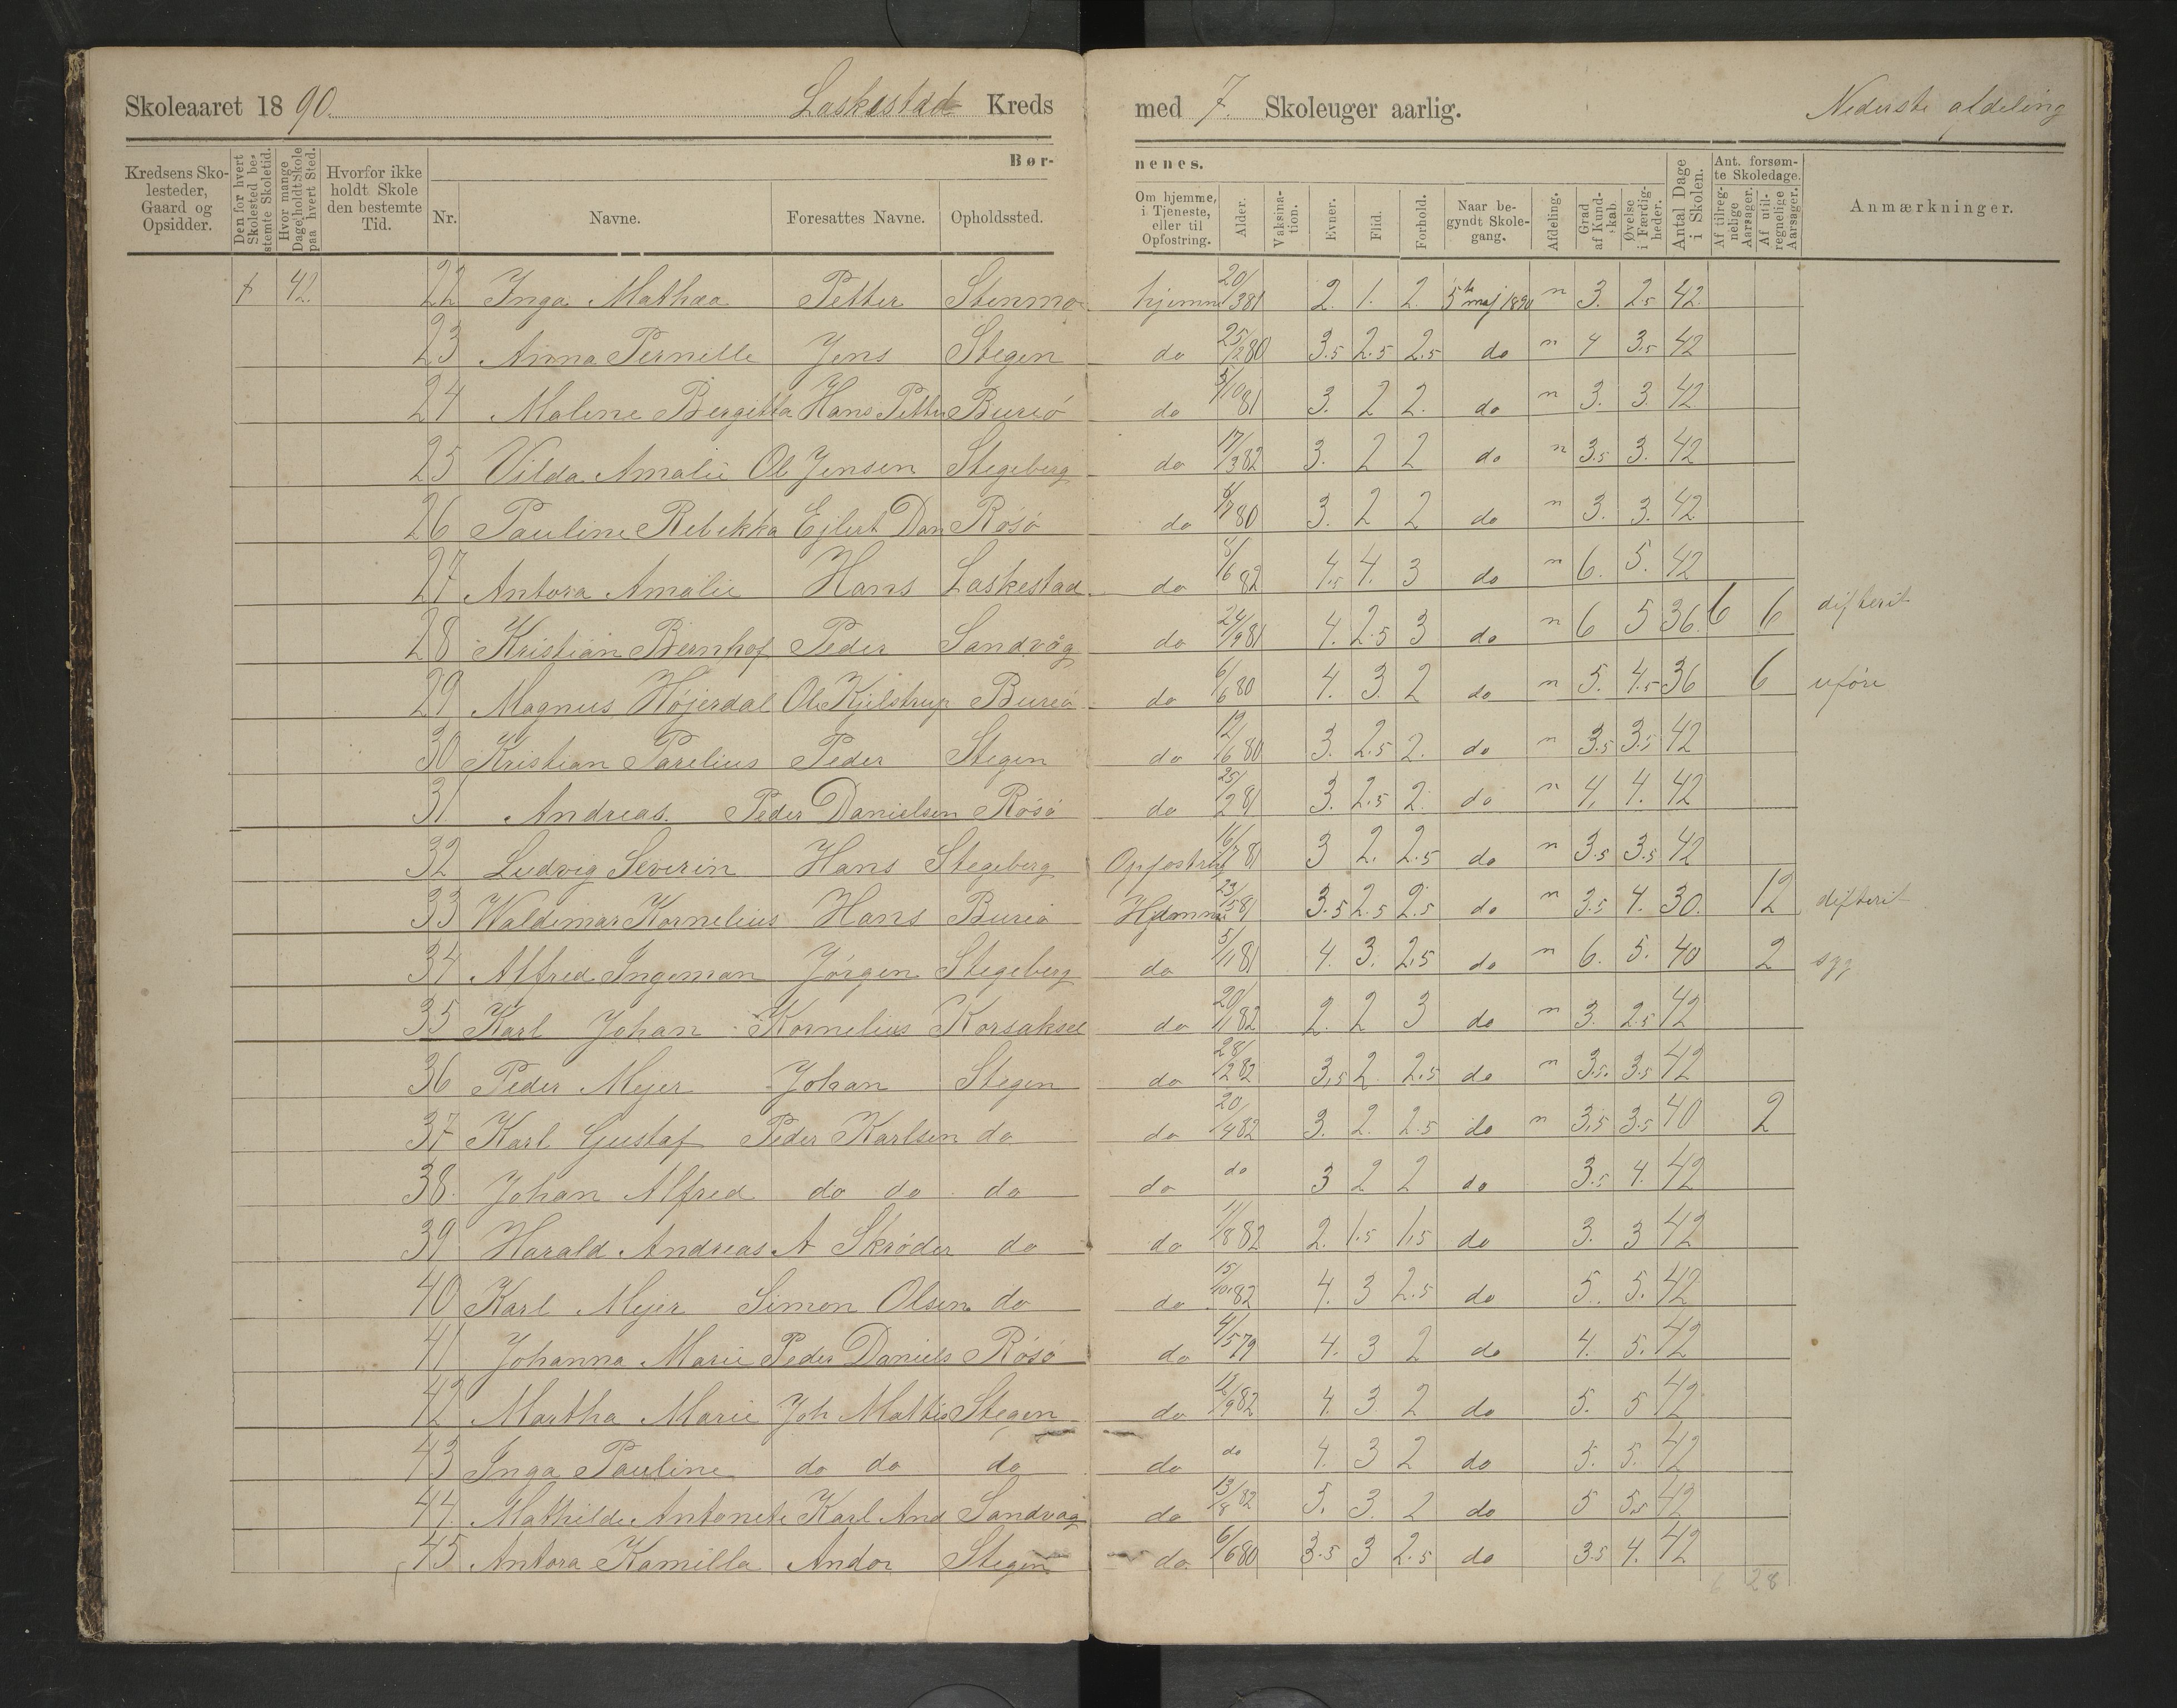 Skoleaaret 1890. Laskestad Kreds med 7. Skoleuger aarlig. Nederste afdeling
Kredsens Skolesteder, Gaard og Opsidder. Den for hvert Skolested bestemte Skoletid. Hvor mange Dage holdt Skole paa hvert Sted. Hvorfor ikke holdt Skole den bestemte Tid. Bør- nenes.
Nr. Navne. Foresattes Navne. Opholdssted. Om hjemme, i Tjeneste, eller til Opfostring. Alder. Vaksination. Evner. Flid. Forhold. Naar begyndt Skolegang. Afdeling. Grad af Kundskab. Øvelse i Færdigheder. Antal Dage i Skolen. Ant. forsømte Skoledage. Af tilregnelige Aarsager. Af utilregnelige Aarsager. Anmærkninger.
7 42. 22 Inga Mathea Petter Stenmo hjemme 20/381 2. 1. 2. 5te maj 1890 n 3. 2.5 42.
23 Anna Pernille Jens Stegen do 25/280 3.5 2.5 2.5 do n 4 3.5 42
24 Malene Bergitta Hans Petter Burø do 5/1081 3. 2 2. do n 3. 3. 42
25 Vilda Amalie Ol Jensen Stegeberg do 17/382 3. 2 2 do n 3.5 3. 42
26 Pauline Rebekka Ejlert Dan Røsø do 80 3. 2 2 do n 3. 3. 42
27 Antora Amalie Hans Laskestad do 8/682 4.5 4. 3 do n 6. 5. 42
28 Kristian Bernhof Peder Sandvåg do 24/981 4. 2.5 3 do n 6 5 36. 6 6 difterit
29 Magnus Højerdal Ole Kjelstrup Bureø do 6/680 4. 3. 2 do n 5. 4.5 36 6 uføre
30 Kristian Parelius Peder Stegen do 12/680 3. 2.5 2. do n 3.5 3.5 42
31 Andreas. Peder Danielsen Røsø do 25/281 3. 2.5 2. do n 4. 4. 42
32 Ludvig Severin Hans Stegeberg Opfostring 16/781 3 2. 2.5 do n 3.5 3.5 42
33 Waldimar Kornelius Hans Bureø Hjemme 23/581 3.5 2.5 2.5 do n 3.5 4. 30. 12 difterit
34 Alfred Ingeman Jørgen Stegeberg do 5/181 4. 3. 2.5 do n 6. 5. 40 2 syg
35 Karl Johan Kornelius Korsaksel do 20/182 2. 2 3 do n 3. 2.5 42
36 Peder Mejer Johan Stegen do 28/282 3.5 2 2.5 do n 3.5. 3.5 42
37 Karl Gustaf Peder Karlsen do do 20/482 3. 2. 2.5 do n 3.5 3.5 40 2
38. Johan Alfred do do do do do 3 2 2 do 3.5 4. 42
39 Harald Andreas A Skrøder do do 11/882 2. 1.5 1.5 do 3. 3 42
40 Karl Mejer Simon Olsen do do 15/1082 4. 3 2.5 do 5. 5. 42
41 Johanna Marie Peder Daniels Røsø do 4/579 4. 3 2 do 4. 5. 42
42 Martha Marie Joh Mattis Stegen do 12/982 4. 3 2 do 5. 5 42
43 Inga Pauline do do do do do 4. 3 2 do 5. 5. 42
44. Mathilde Antonete Karl And Sandvåg do 13/882 5. 3. 2 do 5 5.5 42
45 Antora Kamilla Andor Stegen do 6/680 3.5 3 2.5 do 3.5 4. 42
6 28